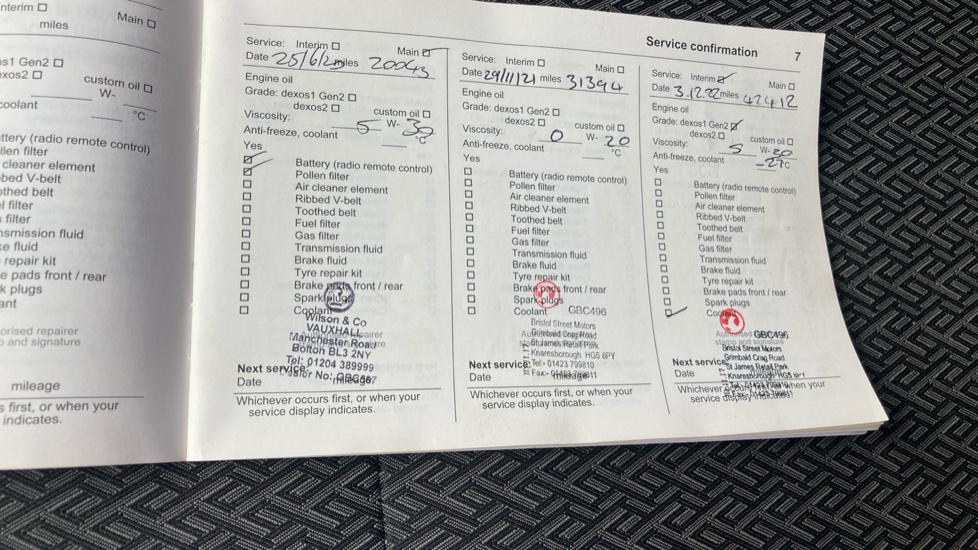 Service confirmation 7
nterim ☐
Main ☐
miles
os1 Gen2 ☐
exos2 ☐
custom oil ☐
W-
°C
coolant
ttery (radio remote control)
llen filter
cleaner element
bed V-belt
othed belt
l filter
filter
nsmission fluid
e fluid
repair kit
e pads front / rear
k plugs
ant
orised repairer
and signature
mileage
s first, or when your
indicates.
Service: Interim ☐ Main ☑
Date 25/6/20 miles 20043
Engine oil
Grade: dexos1 Gen2 ☐
dexos2 ☐ custom oil ☐
Viscosity: 5 W- 30
Anti-freeze, coolant °C
Yes
Battery (radio remote control)
Pollen filter
Air cleaner element
Ribbed V-belt
Toothed belt
Fuel filter
Gas filter
Transmission fluid
Brake fluid
Tyre repair kit
Brake pads front / rear
Spark plugs
Coolant
Wilson & Co
VAUXHALL
Manchester Road
Bolton BL3 2NY
Tel: 01204 389999
Next service:
Date mileage
Whichever occurs first, or when your
service display indicates.
Service: Interim ☐ Main ☐
Date 29/11/21 miles 31394
Engine oil
Grade: dexos1 Gen2 ☐
dexos2 ☐ custom oil ☐
Viscosity: 0 W- 20
Anti-freeze, coolant °C
Yes
Battery (radio remote control)
Pollen filter
Air cleaner element
Ribbed V-belt
Toothed belt
Fuel filter
Gas filter
Transmission fluid
Brake fluid
Tyre repair kit
Brake pads front / rear
Spark plugs
Coolant GBC496
Bristol Street Motors
Grimbald Crag Road
St James Retail Park
Knaresborough HG5 8PY
Tel:- 01423 799810
Next service:
Date mileage
Whichever occurs first, or when your
service display indicates.
Service: Interim ☑ Main ☐
Date 3.12.22 miles 42412
Engine oil
Grade: dexos1 Gen2 ☑
dexos2 ☐ custom oil ☐
Viscosity: 5 W- 30
Anti-freeze, coolant -27°C
Yes
Battery (radio remote control)
Pollen filter
Air cleaner element
Ribbed V-belt
Toothed belt
Fuel filter
Gas filter
Transmission fluid
Brake fluid
Tyre repair kit
Brake pads front / rear
Spark plugs
Coolant
GBC496
stamp and signature
Bristol Street Motors
Grimbald Crag Road
St James Retail Park
Knaresborough HG5 8PY
Next service:
Date
Whichever occurs first, or when your
service display indicates.